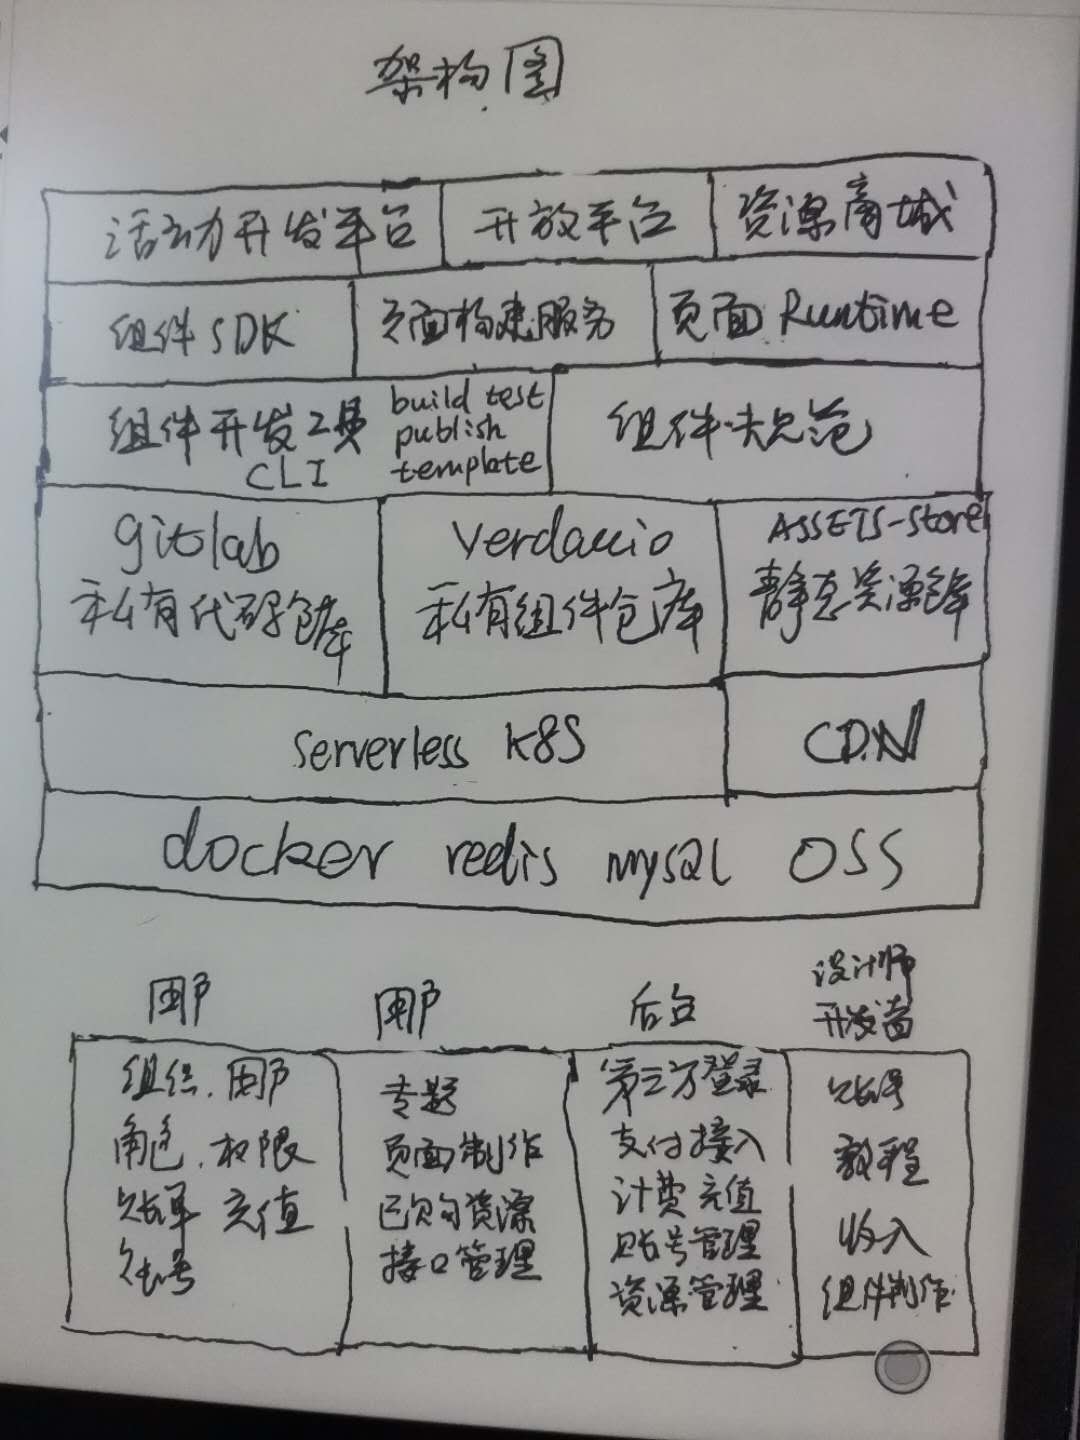 架构图
活动开发平台
开放平台
资源商城
组件SDK
页面构建服务
页面Runtime
组件开发工具
CLI
build test
publish
template
组件规范
gitlab
私有代码仓库
verdaccio
私有组件仓库
ASSETS-store
静态资源仓库
serverless K8S
CDN
docker redis mysql OSS
用户
组织、用户
角色、权限
账单 充值
账号
用户
专题
页面制作
已购资源
接口管理
后台
第三方登录
支付接入
计费充值
账号管理
资源管理
设计师
开发者
账号
教程
收入
组件制作